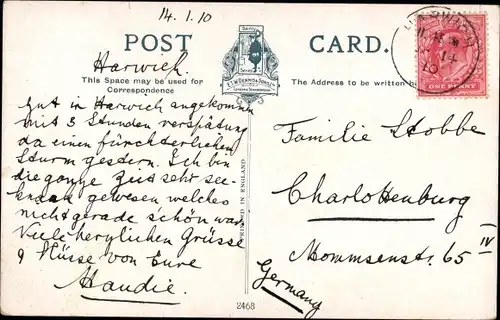 14.1.10
POST CARD.
This Space may be used for
Correspondence
The Address to be written
Harwich.
Gut in Harwich angekommen
mit 3 Stunden verspätung
da einen fürchterlichen
Sturm gestern. Ich bin
die ganze Zeit sehr see-
krank gewesen welches
nicht gerade schön war.
Viele herzlichen Grüsse
& Küsse von Eure
Maudie.
PRINTED IN ENGLAND
2468
Familie Stobbe
Charlottenburg
Mommsenst. 65 IV
Germany
ONE PENNY